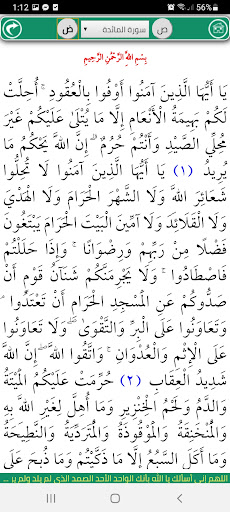 1:12 56%
ض سورة المائدة ص
بِسْمِ اللَّهِ الرَّحْمَنِ الرَّحِيمِ
يَا أَيُّهَا الَّذِينَ آمَنُوا أَوْفُوا بِالْعُقُودِ ۚ أُحِلَّتْ
لَكُمْ بَهِيمَةُ الْأَنْعَامِ إِلَّا مَا يُتْلَى عَلَيْكُمْ غَيْرَ
مُحِلِّي الصَّيْدِ وَأَنْتُمْ حُرُمٌ ۗ إِنَّ اللَّهَ يَحْكُمُ مَا
يُرِيدُ (١) يَا أَيُّهَا الَّذِينَ آمَنُوا لَا تُحِلُّوا
شَعَائِرَ اللَّهِ وَلَا الشَّهْرَ الْحَرَامَ وَلَا الْهَدْيَ
وَلَا الْقَلَائِدَ وَلَا آمِّينَ الْبَيْتَ الْحَرَامَ يَبْتَغُونَ
فَضْلًا مِنْ رَبِّهِمْ وَرِضْوَانًا ۚ وَإِذَا حَلَلْتُمْ
فَاصْطَادُوا ۚ وَلَا يَجْرِمَنَّكُمْ شَنَآنُ قَوْمٍ أَنْ
صَدُّوكُمْ عَنِ الْمَسْجِدِ الْحَرَامِ أَنْ تَعْتَدُوا ۘ
وَتَعَاوَنُوا عَلَى الْبِرِّ وَالتَّقْوَى ۖ وَلَا تَعَاوَنُوا
عَلَى الْإِثْمِ وَالْعُدْوَانِ ۚ وَاتَّقُوا اللَّهَ ۖ إِنَّ اللَّهَ
شَدِيدُ الْعِقَابِ (٢) حُرِّمَتْ عَلَيْكُمُ الْمَيْتَةُ
وَالدَّمُ وَلَحْمُ الْخِنْزِيرِ وَمَا أُهِلَّ لِغَيْرِ اللَّهِ بِهِ
وَالْمُنْخَنِقَةُ وَالْمَوْقُوذَةُ وَالْمُتَرَدِّيَةُ وَالنَّطِيحَةُ
وَمَا أَكَلَ السَّبُعُ إِلَّا مَا ذَكَّيْتُمْ وَمَا ذُبِحَ عَلَى
اللهم إني أسألك يا الله بأنك الواحد الأحد الصمد الذي لم يلد ولم